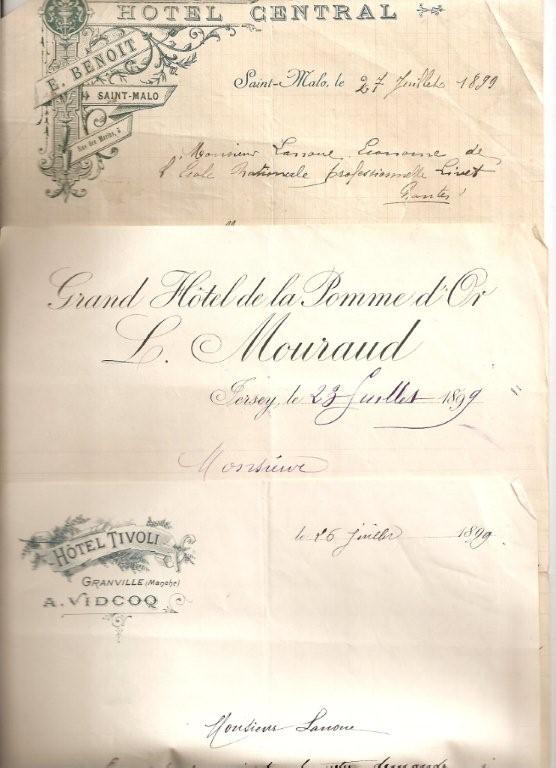 HOTEL CENTRAL
E. BENOIT
SAINT-MALO
Rue des Marins, 5
Saint-Malo, le 27 Juillet 1899
Monsieur Lanoue Econome de
l'Ecole Nationale professionnelle Livet
Nantes
Grand Hôtel de la Pomme d'Or
L. Mouraud
Jersey, le 23 Juillet 1899
Monsieur
HÔTEL TIVOLI
GRANVILLE (Manche)
A. VIDCOQ
le 26 juillet 1899
Monsieur Lanoue
votre demande